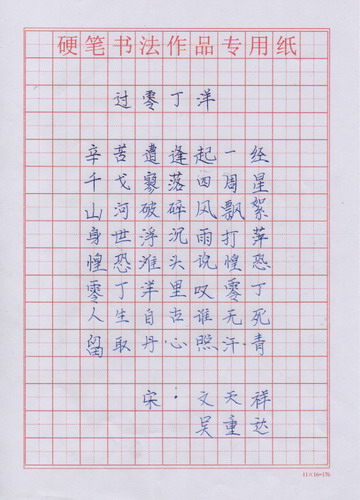 硬笔书法作品专用纸
过零丁洋
辛苦遭逢起一经
干戈寥落四周星
山河破碎风飘絮
身世浮沉雨打萍
惶恐滩头说惶恐
零丁洋里叹零丁
人生自古谁无死
留取丹心照汗青
宋·文天祥
吴重达
11×16=176